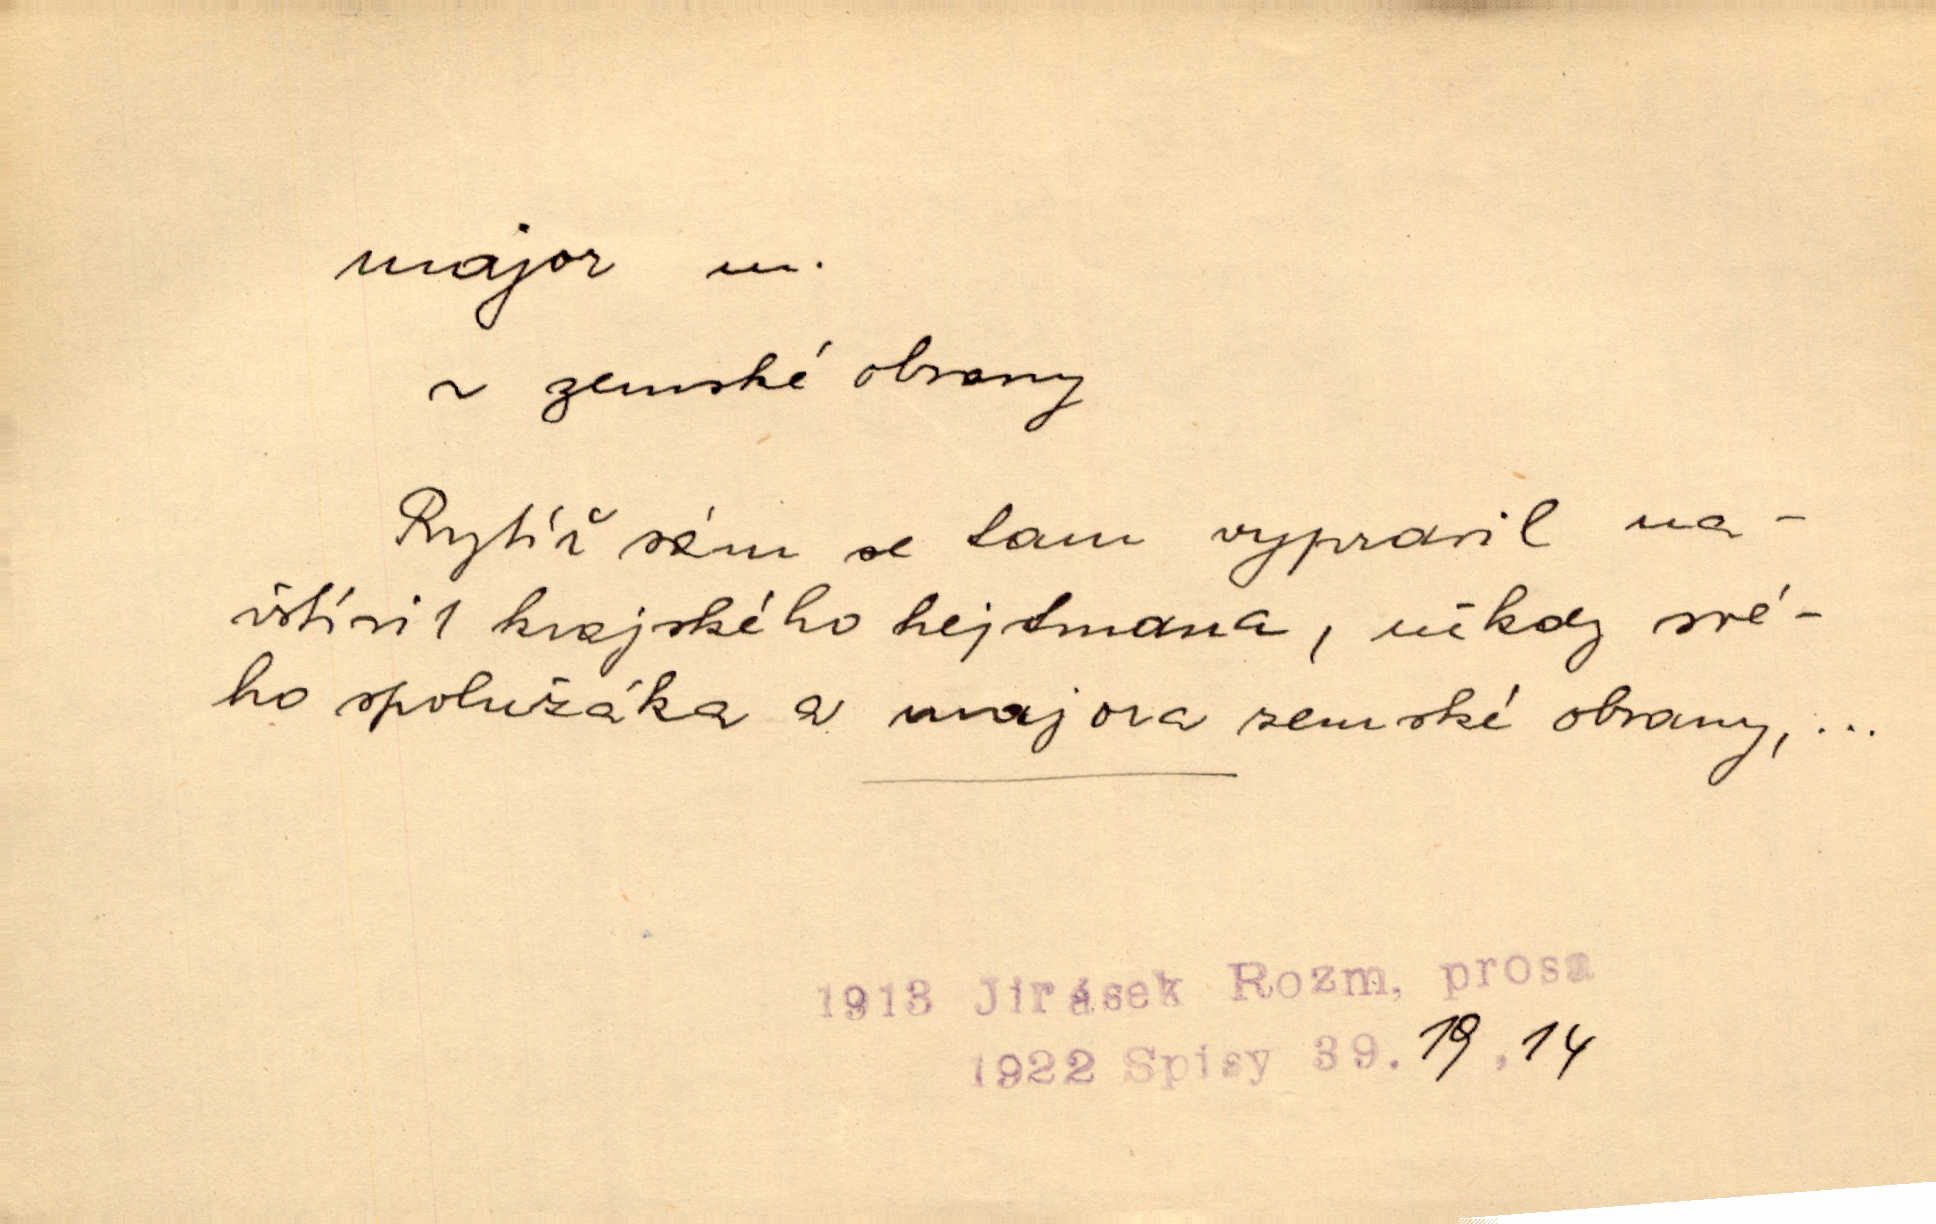 major m.
~ zemské obrany
Rytíř sám se tam vypravil na-
vštívit krajského hejtmana, někdy své-
ho spolužáka a majora zemské obrany, ...
1913 Jirásek Rozm. prosa
1922 Spisy 39. 19, 14